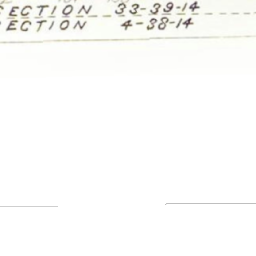 SECTION 33-39-14
SECTION 4-38-14